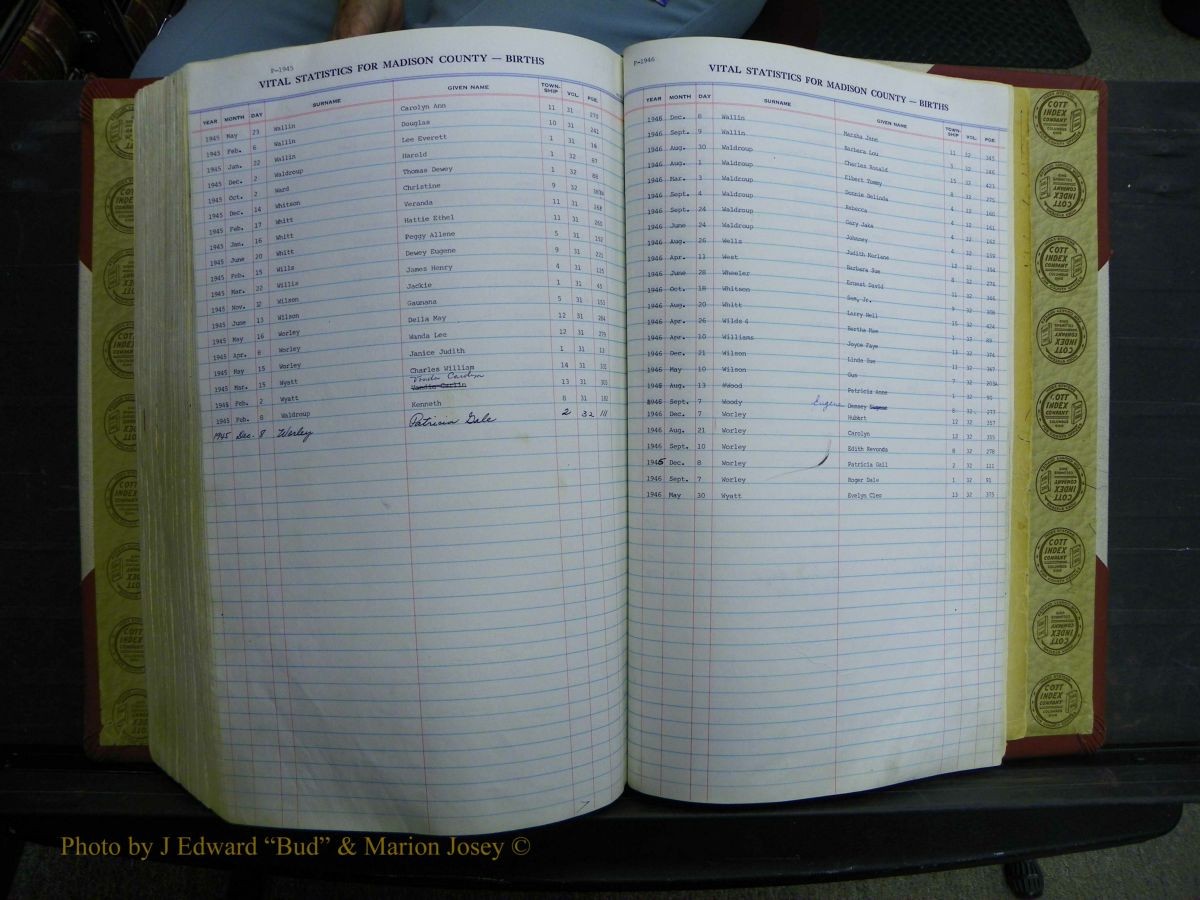 P-1945
VITAL STATISTICS FOR MADISON COUNTY — BIRTHS
YEAR MONTH DAY SURNAME GIVEN NAME TOWN-SHIP VOL. PGE.
1945 May 23 Wallin Carolyn Ann 11 31 270
1945 Feb. 6 Wallin Douglas 10 31 241
1945 Jan. 22 Wallin Lee Everett 1 31 16
1945 Dec. 2 Waldroup Harold 1 32 97
1945 Oct. 2 Ward Thomas Dewey 1 32 88
1945 Dec. 14 Whitson Christine 9 32
1945 Feb. 17 Whitt Veranda 11 31 268
1945 Jan. 16 Whitt Hattie Ethel 11 31 265
1945 June 20 Whitt Peggy Allene 5 31 152
1945 Feb. 15 Wills Dewey Eugene 9 31 221
1945 Mar. 22 Willis James Henry 4 31 125
1945 Nov. 12 Wilson Jackie 1 31 45
1945 June 13 Wilson Gaunana 5 31 153
1945 May 16 Worley Della May 12 31 284
1945 Apr. 8 Worley Wanda Lee 12 31 279
1945 May 15 Worley Janice Judith 1 31 13
1945 Mar. 15 Wyatt Charles William 14 31 331
1945 Feb. 2 Wyatt Vandia Carlin 13 31 305
1945 Feb. 8 Waldroup Kenneth 8 31 182
1945 Dec. 8 Worley Patricia Gale 2 32 111
P-1946
VITAL STATISTICS FOR MADISON COUNTY — BIRTHS
YEAR MONTH DAY SURNAME GIVEN NAME TOWN-SHIP VOL. PGE.
1946 Dec. 8 Wallin Marsha Jane 11 32 345
1946 Sept. 9 Wallin Barbara Lou 32
1946 Aug. 30 Waldroup Charles Ronald 15 32 423
1946 Aug. 1 Waldroup Elbert Tommy 32 275
1946 Mar. 3 Waldroup Donnie Belinda 4 32 160
1946 Sept. 4 Waldroup Rebecca 4 32 161
1946 Sept. 24 Waldroup Gary Jake 4 32 162
1946 June 24 Waldroup Johnney 4 32 159
1946 Aug. 26 Wells Judith Marlene 12 32 354
1946 Apr. 13 West Barbara Sue 8 32 274
1946 June 28 Wheeler Ernest David 11 32
1946 Oct. 18 Whitson Sam, Jr. 9 32 308
1946 Aug. 20 Whitt Larry Nell 15 32 424
1946 Apr. 26 Wilde Bertha Mae 1 32 89
1946 Apr. 10 Williams Joyce Faye 13 32 374
1946 Dec. 21 Wilson Linda Sue 11 32 347
1946 May 10 Wilson Gus 7 32 203A
1945 Aug. 13 Wood Patricia Anne 1 32 90
1946 Sept. 7 Woody Eugene Dewey Eugene 8 32 277
1946 Dec. 7 Worley Hubert 12 32 357
1946 Aug. 21 Worley Carolyn 12 32 355
1946 Sept. 10 Worley Edith Revonda 8 32 278
1945 Dec. 8 Worley Patricia Gail 2 32 111
1946 Sept. 7 Worley Roger Dale 1 32 91
1946 May 30 Wyatt Evelyn Cleo 13 32 375
COTT INDEX COMPANY
COLUMBUS OHIO
Photo by J Edward “Bud” & Marion Josey ©